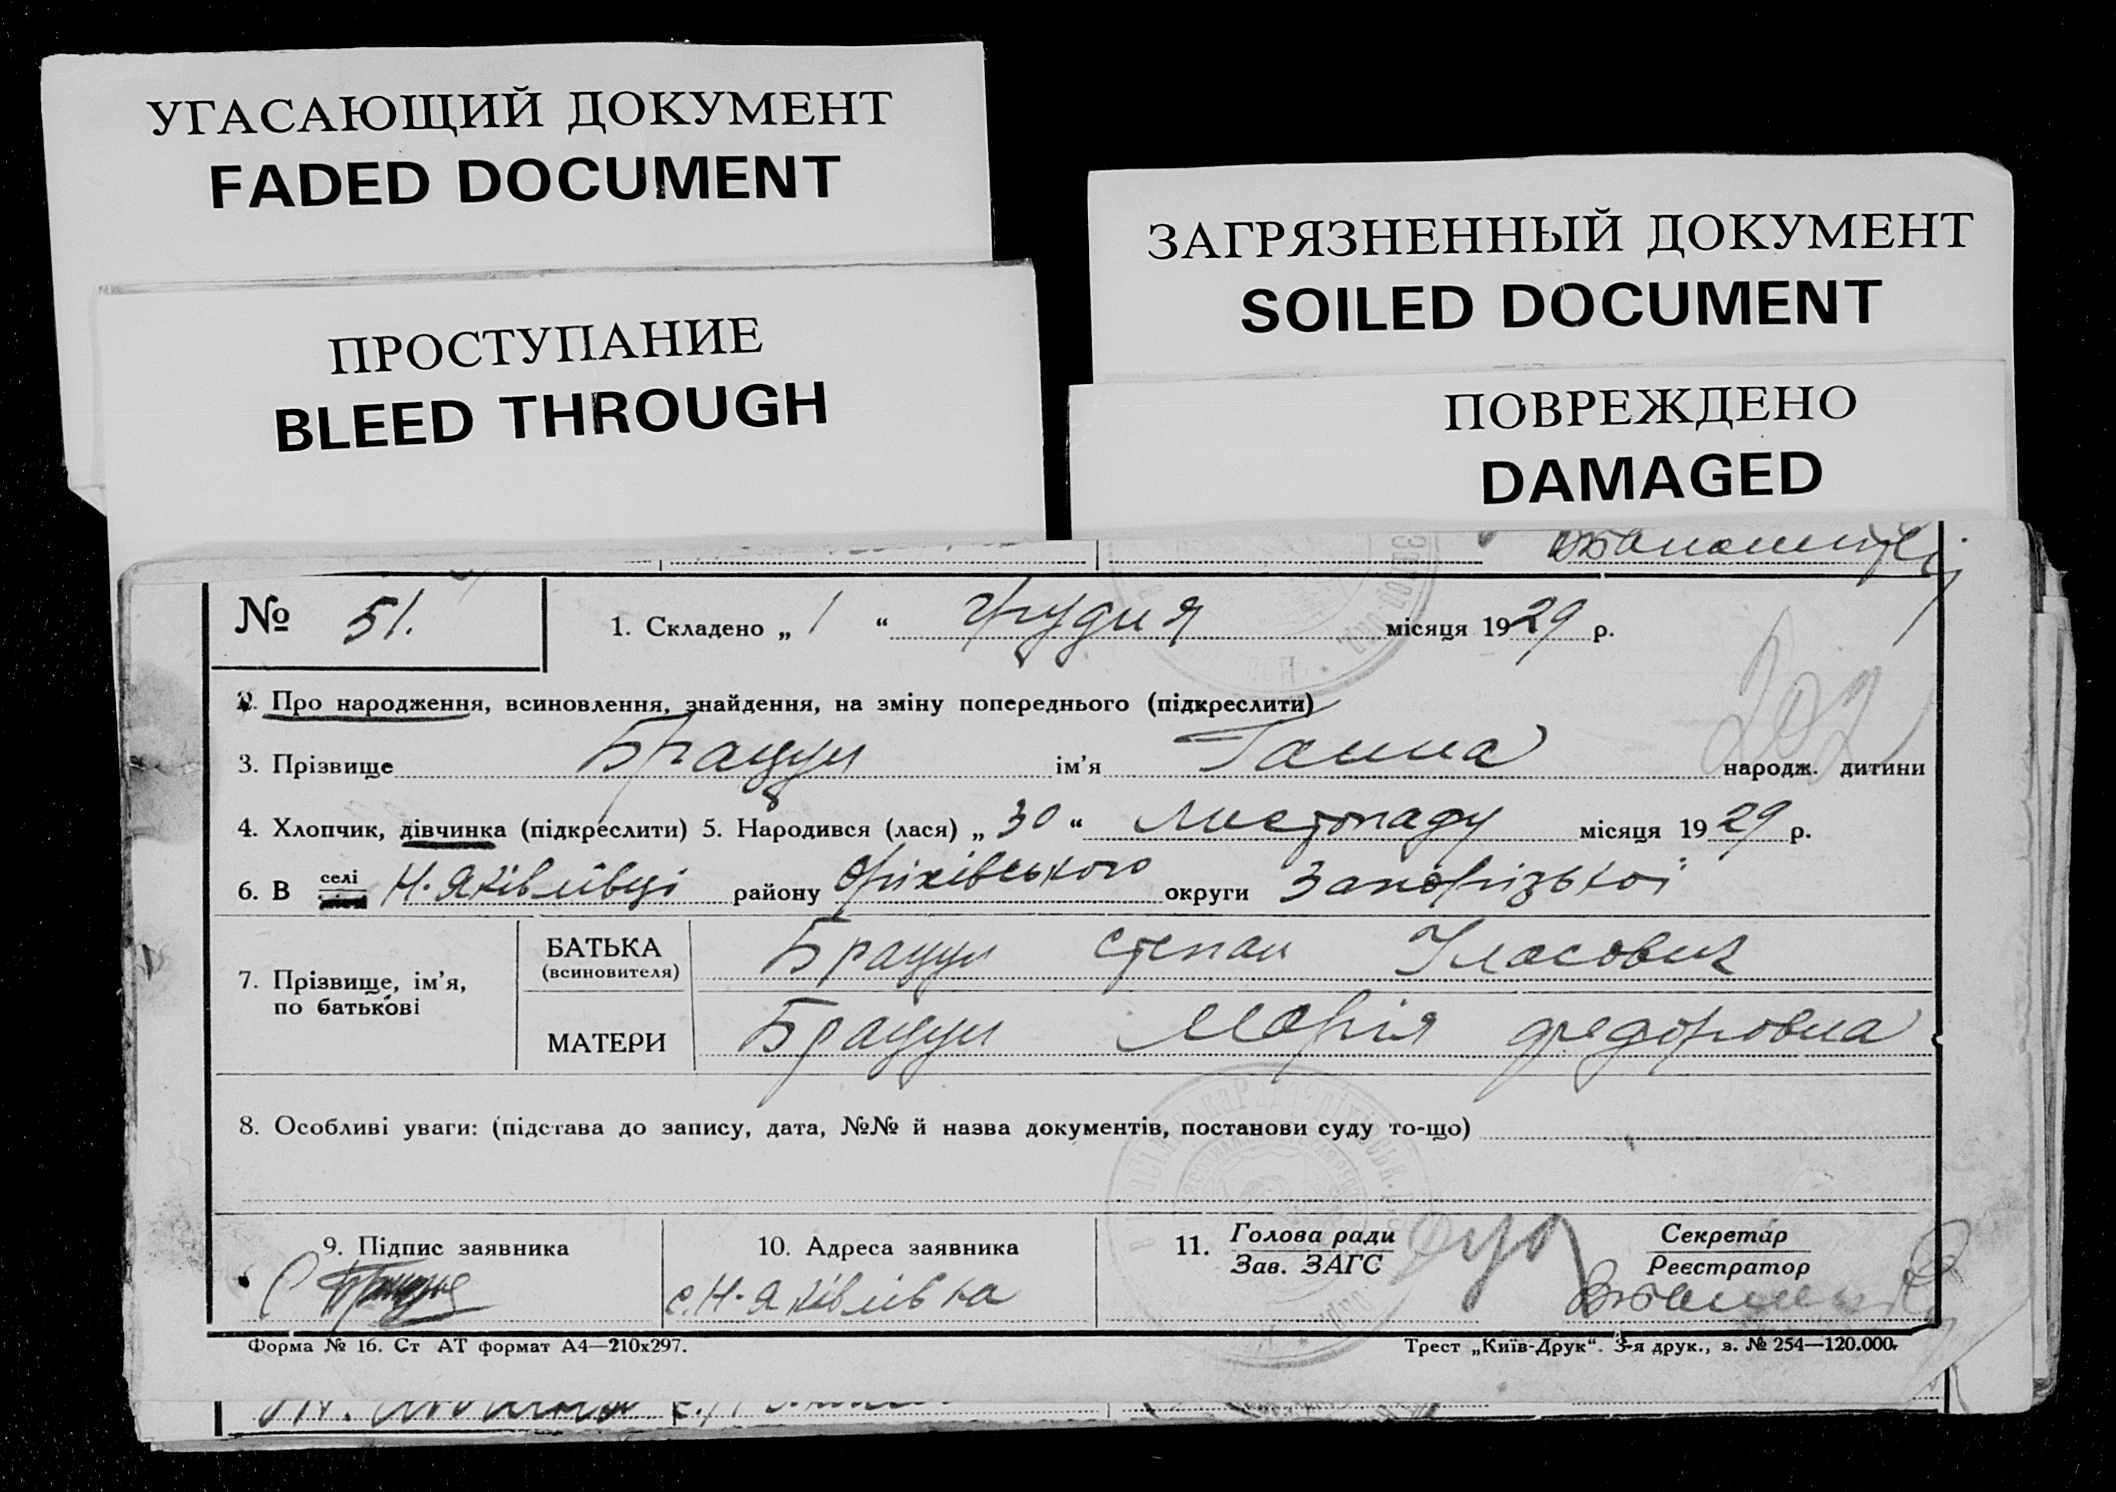 УГАСАЮЩИЙ ДОКУМЕНТ
FADED DOCUMENT
ПРОСТУПАНИЕ
BLEED THROUGH
ЗАГРЯЗНЕННЫЙ ДОКУМЕНТ
SOILED DOCUMENT
ПОВРЕЖДЕНО
DAMAGED
№ 51. 1. Складено „ 1 “ грудня місяця 1929 р.
2. Про народження, всиновлення, знайдення, на зміну попереднього (підкреслити)
202
3. Прізвище Брацун ім'я Ганна народж. дитини
4. Хлопчик, дівчинка (підкреслити) 5. Народився (лася) „ 30 “ листопаду місяця 1929 р.
6. В селі Н-Яківлівці району Оріхівського округи Запорізької
7. Прізвище, ім'я, по батькові
БАТЬКА (всиновителя) Брацун Степан Уласович
МАТЕРИ Брацун Марія Федоровна
8. Особливі уваги: (підстава до запису, дата, №№ й назва документів, постанови суду то-що)
9. Підпис заявника
10. Адреса заявника
с. Н-Яківлівка
11. Голова ради
Зав. ЗАГС
Секретар
Реєстратор
Форма № 16. Ст АТ формат А4—210х297.
Трест „Київ-Друк“. 3-я друк., з. № 254—120.000.